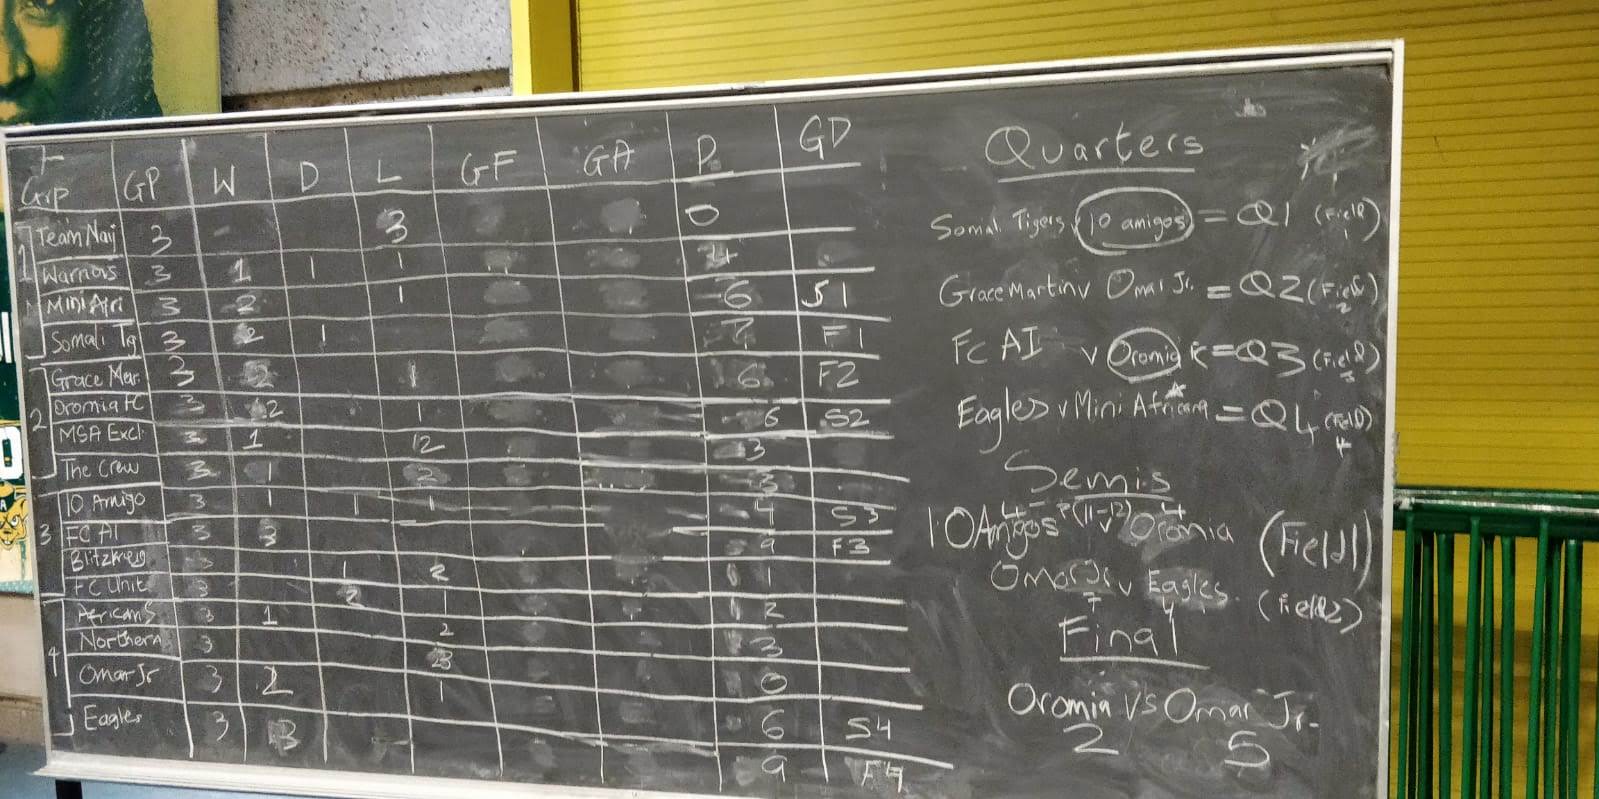 Grp GP W D L GF GA P GD
1
Team Naij 3 - 3 0
Warriors 3 1 1 1 4
Mini Afri 3 2 1 6 S1
Somali Tg 3 2 1 7 F1
2
Grace Mar. 3 2 1 6 F2
Oromia FC 3 2 1 6 S2
MSA Excl. 3 1 2 3
The Crew 3 1 2 3
3
10 Amigo 3 1 1 1 4 S3
FC AI 3 3 9 F3
Blitzkrieg 3 1 2 1
FC Unit 3 2 1 2
4
Africans 3 1 2 3
Northern 3 3 0
Omar Jr 3 2 1 6 S4
Eagles 3 3 9 F4
Quarters
Somali Tigers v 10 amigos = Q1 (Field 1)
Grace Martin v Omar Jr. = Q2 (Field 2)
FC AI v Oromia = Q3 (Field 3)
Eagles v Mini African = Q4 (Field 4)
Semis
10 Amigos v Oromia (Field 1)
4 P(11-12) 4
Omar Jr v Eagles. (Field 2)
Final
Oromia Vs Omar Jr.
2 5